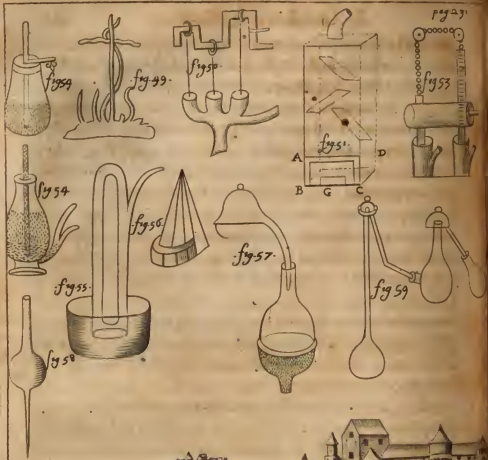 pag 231
fig 54
fig. 49.
fig 50.
fig 51.
fig 53
A
D
B
G
C
fig 54
fig 55.
fig 56.
fig 57.
fig 58
fig 59